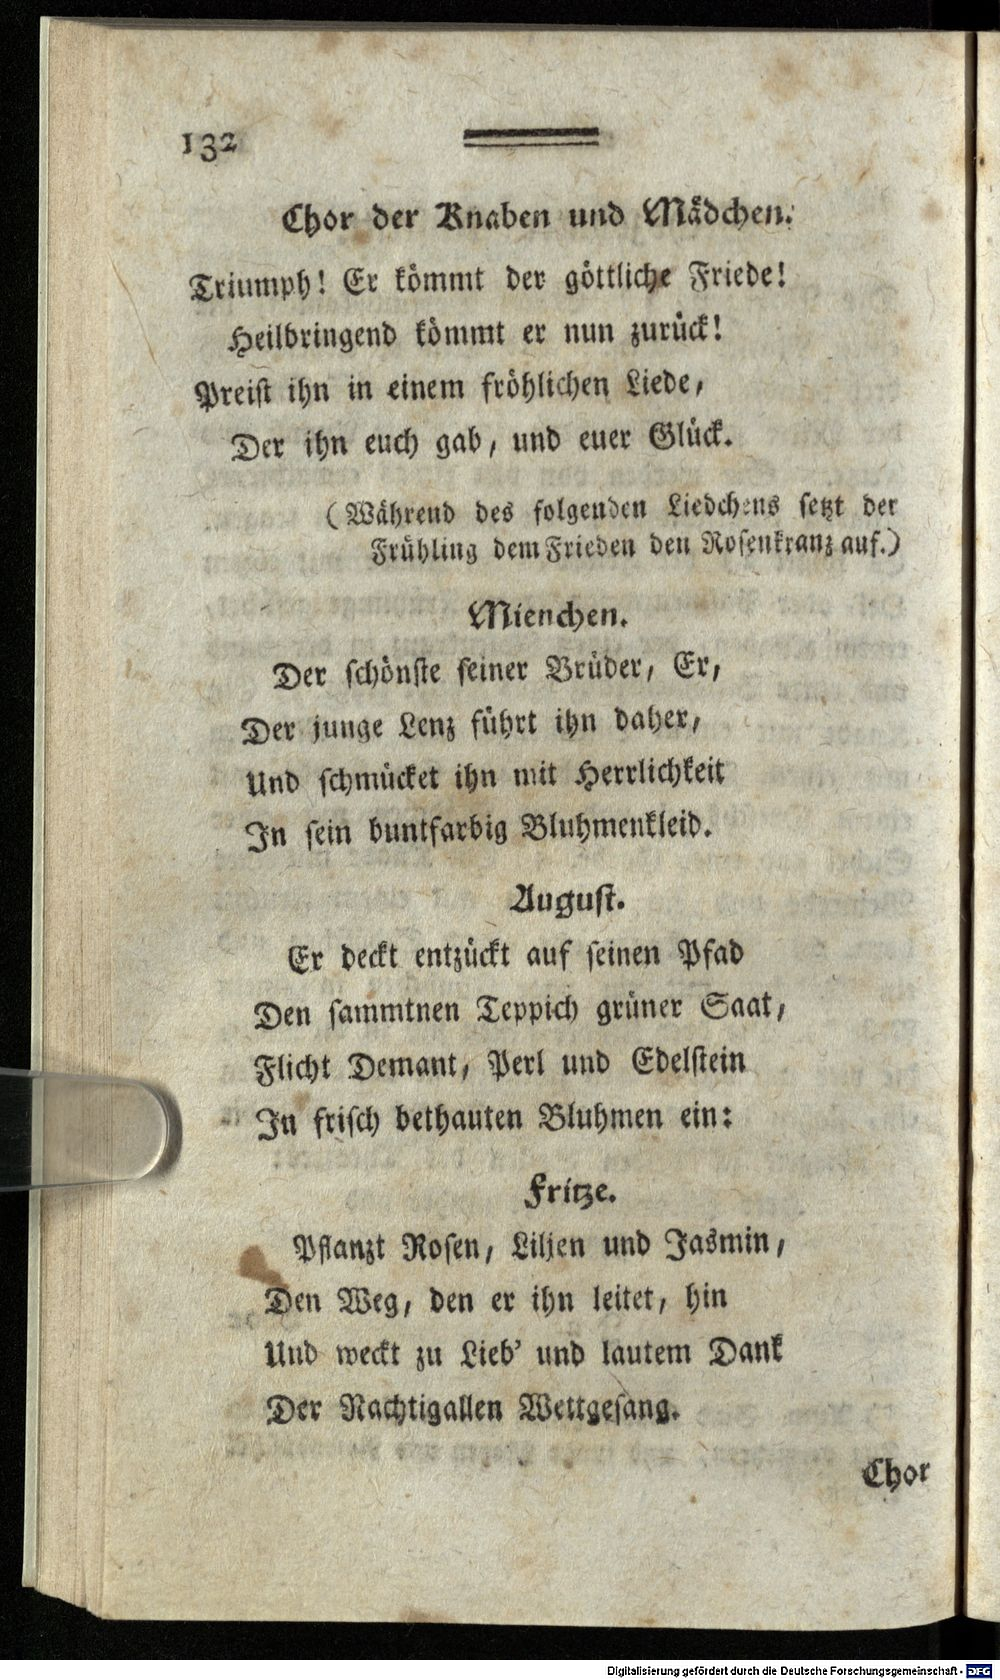 132
Chor der Knaben und Mädchen.
Triumph! Er kömmt der göttliche Friede!
Heilbringend kömmt er nun zurück!
Preist ihn in einem fröhlichen Liede,
Der ihn euch gab, und euer Glück.
(Während des folgenden Liedchens setzt der
Frühling dem Frieden den Rosenkranz auf.)
Mienchen.
Der schönste seiner Brüder, Er,
Der junge Lenz führt ihn daher,
Und schmücket ihn mit Herrlichkeit
In sein buntfarbig Bluhmenkleid.
August.
Er deckt entzückt auf seinen Pfad
Den sammtnen Teppich grüner Saat,
Flicht Demant, Perl und Edelstein
In frisch bethauten Bluhmen ein:
Fritze.
Pflanzt Rosen, Liljen und Jasmin,
Den Weg, den er ihn leitet, hin
Und weckt zu Lieb' und lautem Dank
Der Nachtigallen Wettgesang.
Chor
Digitalisierung gefördert durch die Deutsche Forschungsgemeinschaft - DFG